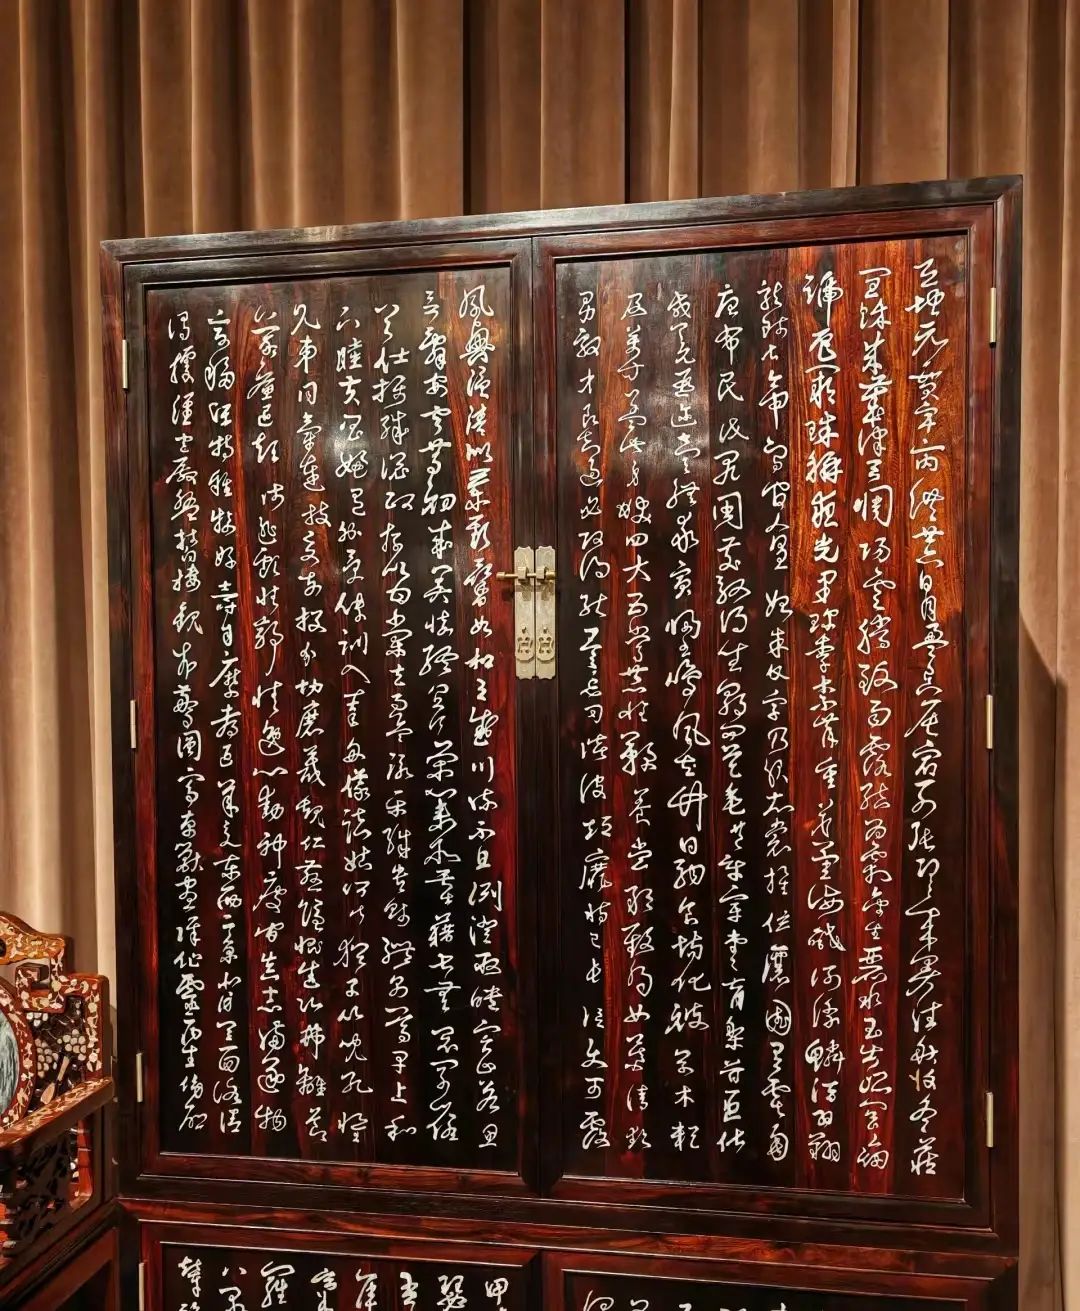 天地元黃宇宙洪荒日月盈昃辰宿列張寒來暑往秋收冬藏
閏餘成歲律召調陽雲騰致雨露結為霜金生麗水玉出崑岡劍
號巨闕珠稱夜光果珍李柰菜重芥薑海鹹河淡鱗潛羽翔
龍師火帝鳥官人皇始制文字乃服衣裳推位讓國有虞陶
唐弔民伐罪周發殷湯坐朝問道垂拱平章愛育黎首臣伏
戎羌遐邇壹體率賓歸王鳴鳳在樹白駒食場化被草木賴
及萬方蓋此身髮四大五常恭惟鞠養豈敢毀傷女慕清潔
男效才良知過必改得能莫忘罔談彼短靡恃己長信使可覆
夙興溫凊似蘭斯馨如松之盛川流不息淵澄取映容止若思
言辭安定篤初誠美慎終宜令榮業所基藉甚無竟學優
登仕攝職從政存以甘棠去而益詠樂殊貴賤禮別尊卑上和
下睦夫唱婦隨外受傅訓入奉母儀諸姑伯叔猶子比兒孔懷
兄弟同氣連枝交友投分切磨箴規仁慈隱惻造次弗離節
義廉退顛沛匪虧性靜情逸心動神疲守真志滿逐物
意移堅持雅操好爵自縻都邑華夏東西二京背邙面洛浮
渭據涇宮殿盤鬱樓觀飛驚圖寫禽獸畫彩仙靈丙舍傍啟